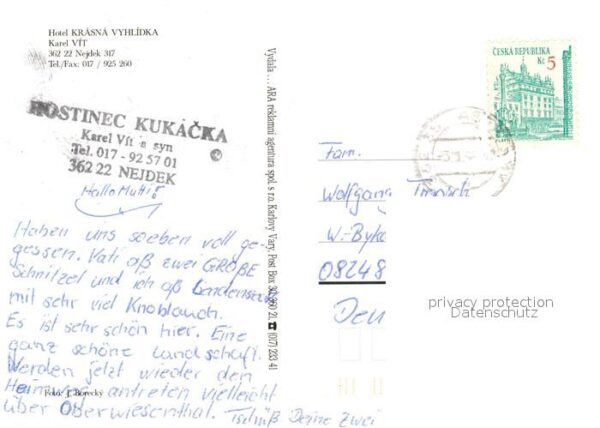 Hotel KRÁSNÁ VYHLÍDKA
Karel VÍT
362 22 Nejdek 317
Tel./Fax: 017 / 925 260
HOSTINEC KUKAČKA
Karel Vít a syn
Tel. 017 - 92 57 01
362 22 NEJDEK
Hallo Mutti!
Haben uns soeben voll ge-
gessen. Kati aß zwei GROßE
Schnitzel und ich aß
mit sehr viel Knoblauch.
Es ist sehr schön hier. Eine
ganz schöne Landschaft.
Werden jetzt wieder den
Heimweg antreten vielleicht
über Oberwiesenthal. Tschüß Deine Zwei
Foto: J. Borecký
Vydala ... ARA reklamní agentura spol. s r.o. Karlovy Vary, Post Box 30, 360 21, ☎ (017) 233 41
ČESKÁ REPUBLIKA
Kč 5
Fam.
Wolfgang
08248
privacy protection
Datenschutz